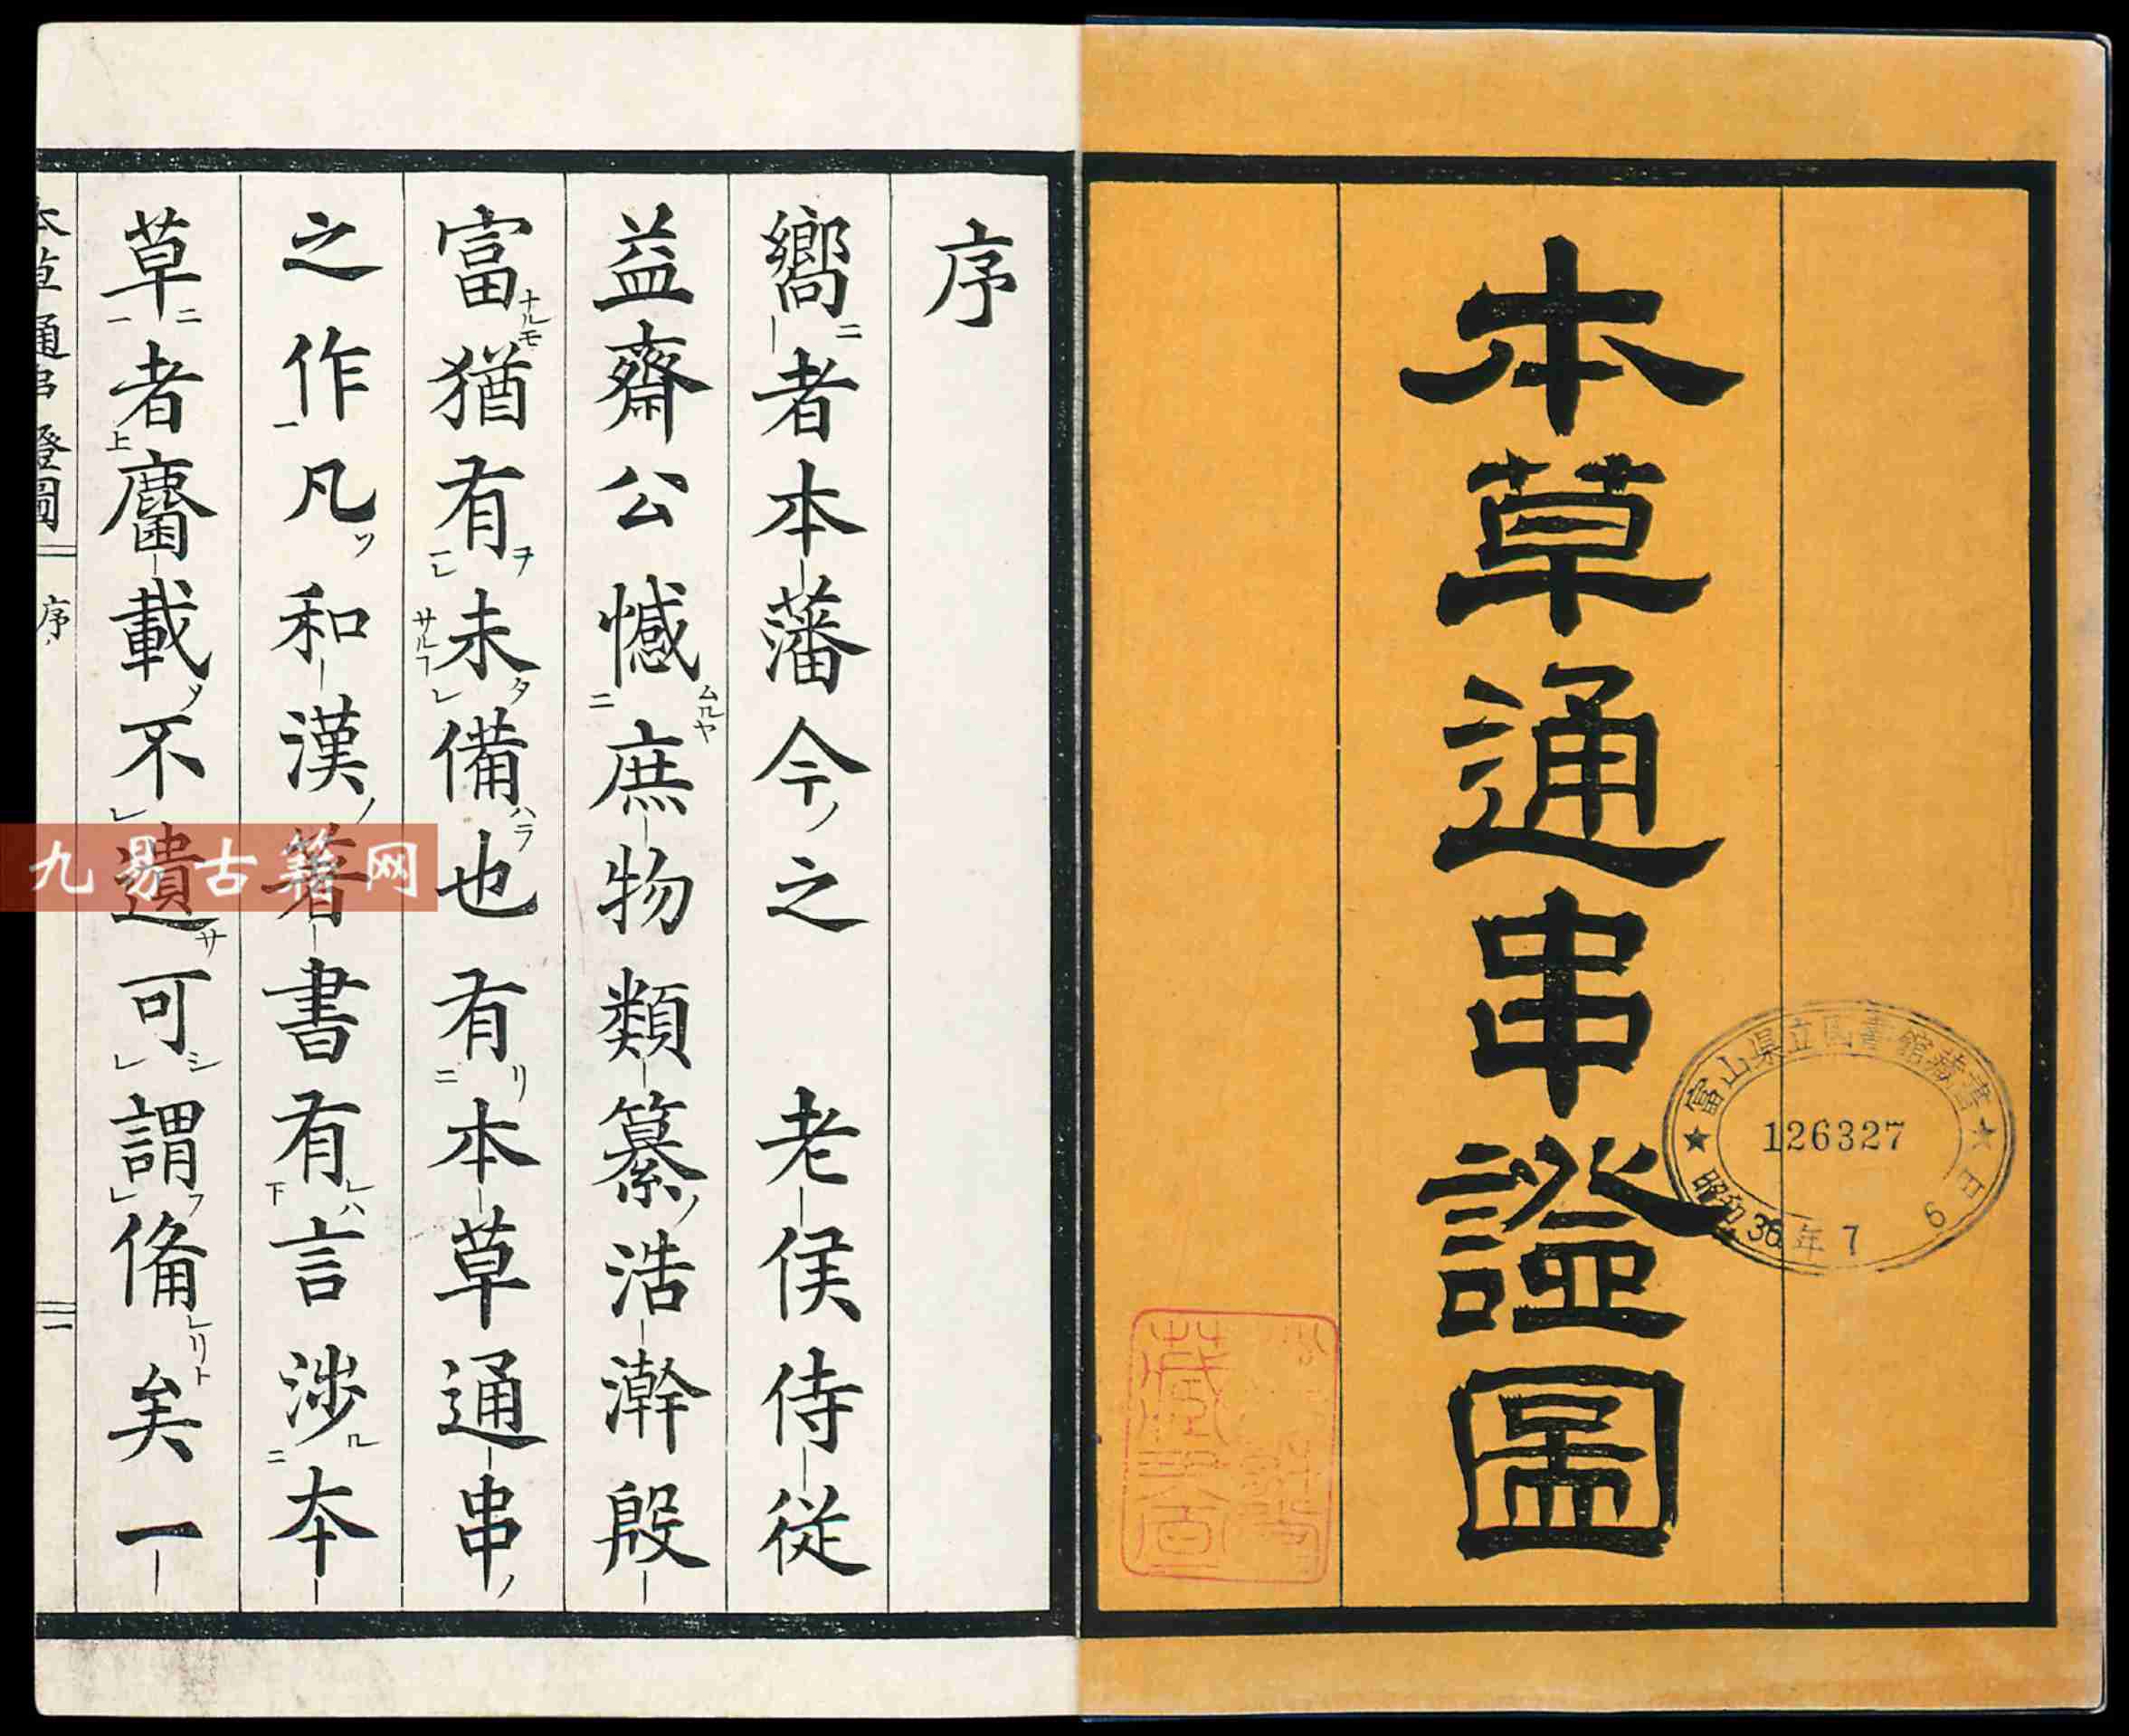 本草通串證圖
富山県立図書館蔵書
126327
昭和36年7月6日
序
嚮者本藩今之 老侯侍従
益齋公憾庶物類纂浩瀚殷
富猶有未備也有本草通串
之作凡和漢著書有言渉本
草者麕載不遺可謂備矣一
本草通串證圖 序 一
九易古籍网